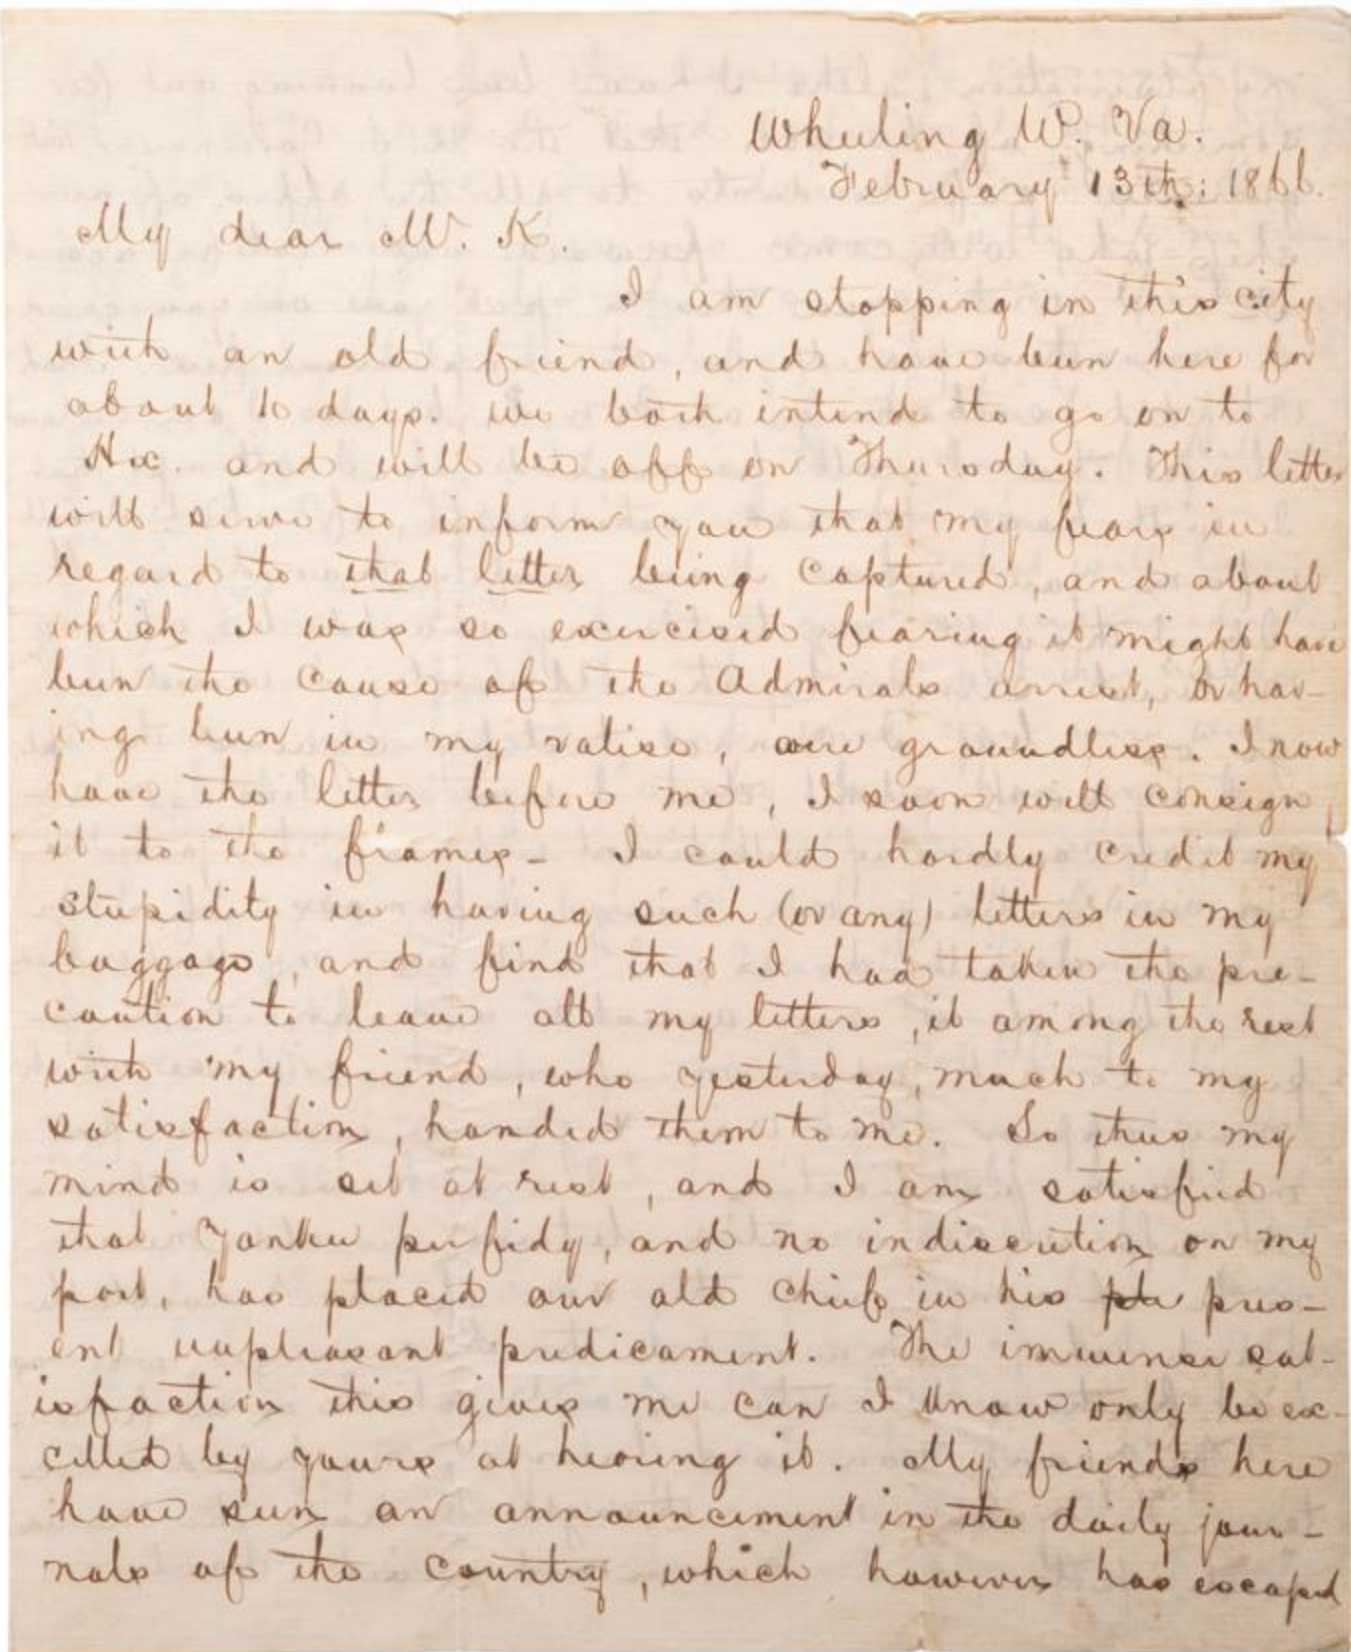 Wheeling W. Va.
February 13th: 1866.
My dear Mr. K.
I am stopping in this city
with an old friend, and have been here for
about 10 days. we both intend to go on to
Hx. and will be off on Thursday. This letter
will serve to inform you that my fears in
regard to that letter being captured, and about
which I was so exercised fearing it might have
been the cause of the Admirals arrest, or hav-
ing been in my valise, are groundless. I now
have the letter before me, I soon will consign
it to the flames - I could hardly credit my
stupidity in having such (or any) letters in my
baggage, and find that I had taken the pre-
caution to leave all my letters, it among the rest
with my friend, who yesterday, much to my
satisfaction, handed them to me. So thus my
mind is set at rest, and I am satisfied
that Yankee perfidy, and no indiscretion on my
part, has placed our old chief in his pres-
ent unpleasant predicament. The immense sat-
isfaction this gives me can I know only be ex-
celled by yours at hearing it. My friends here
have seen an announcement in the daily jour-
nals of the country, which however has escaped